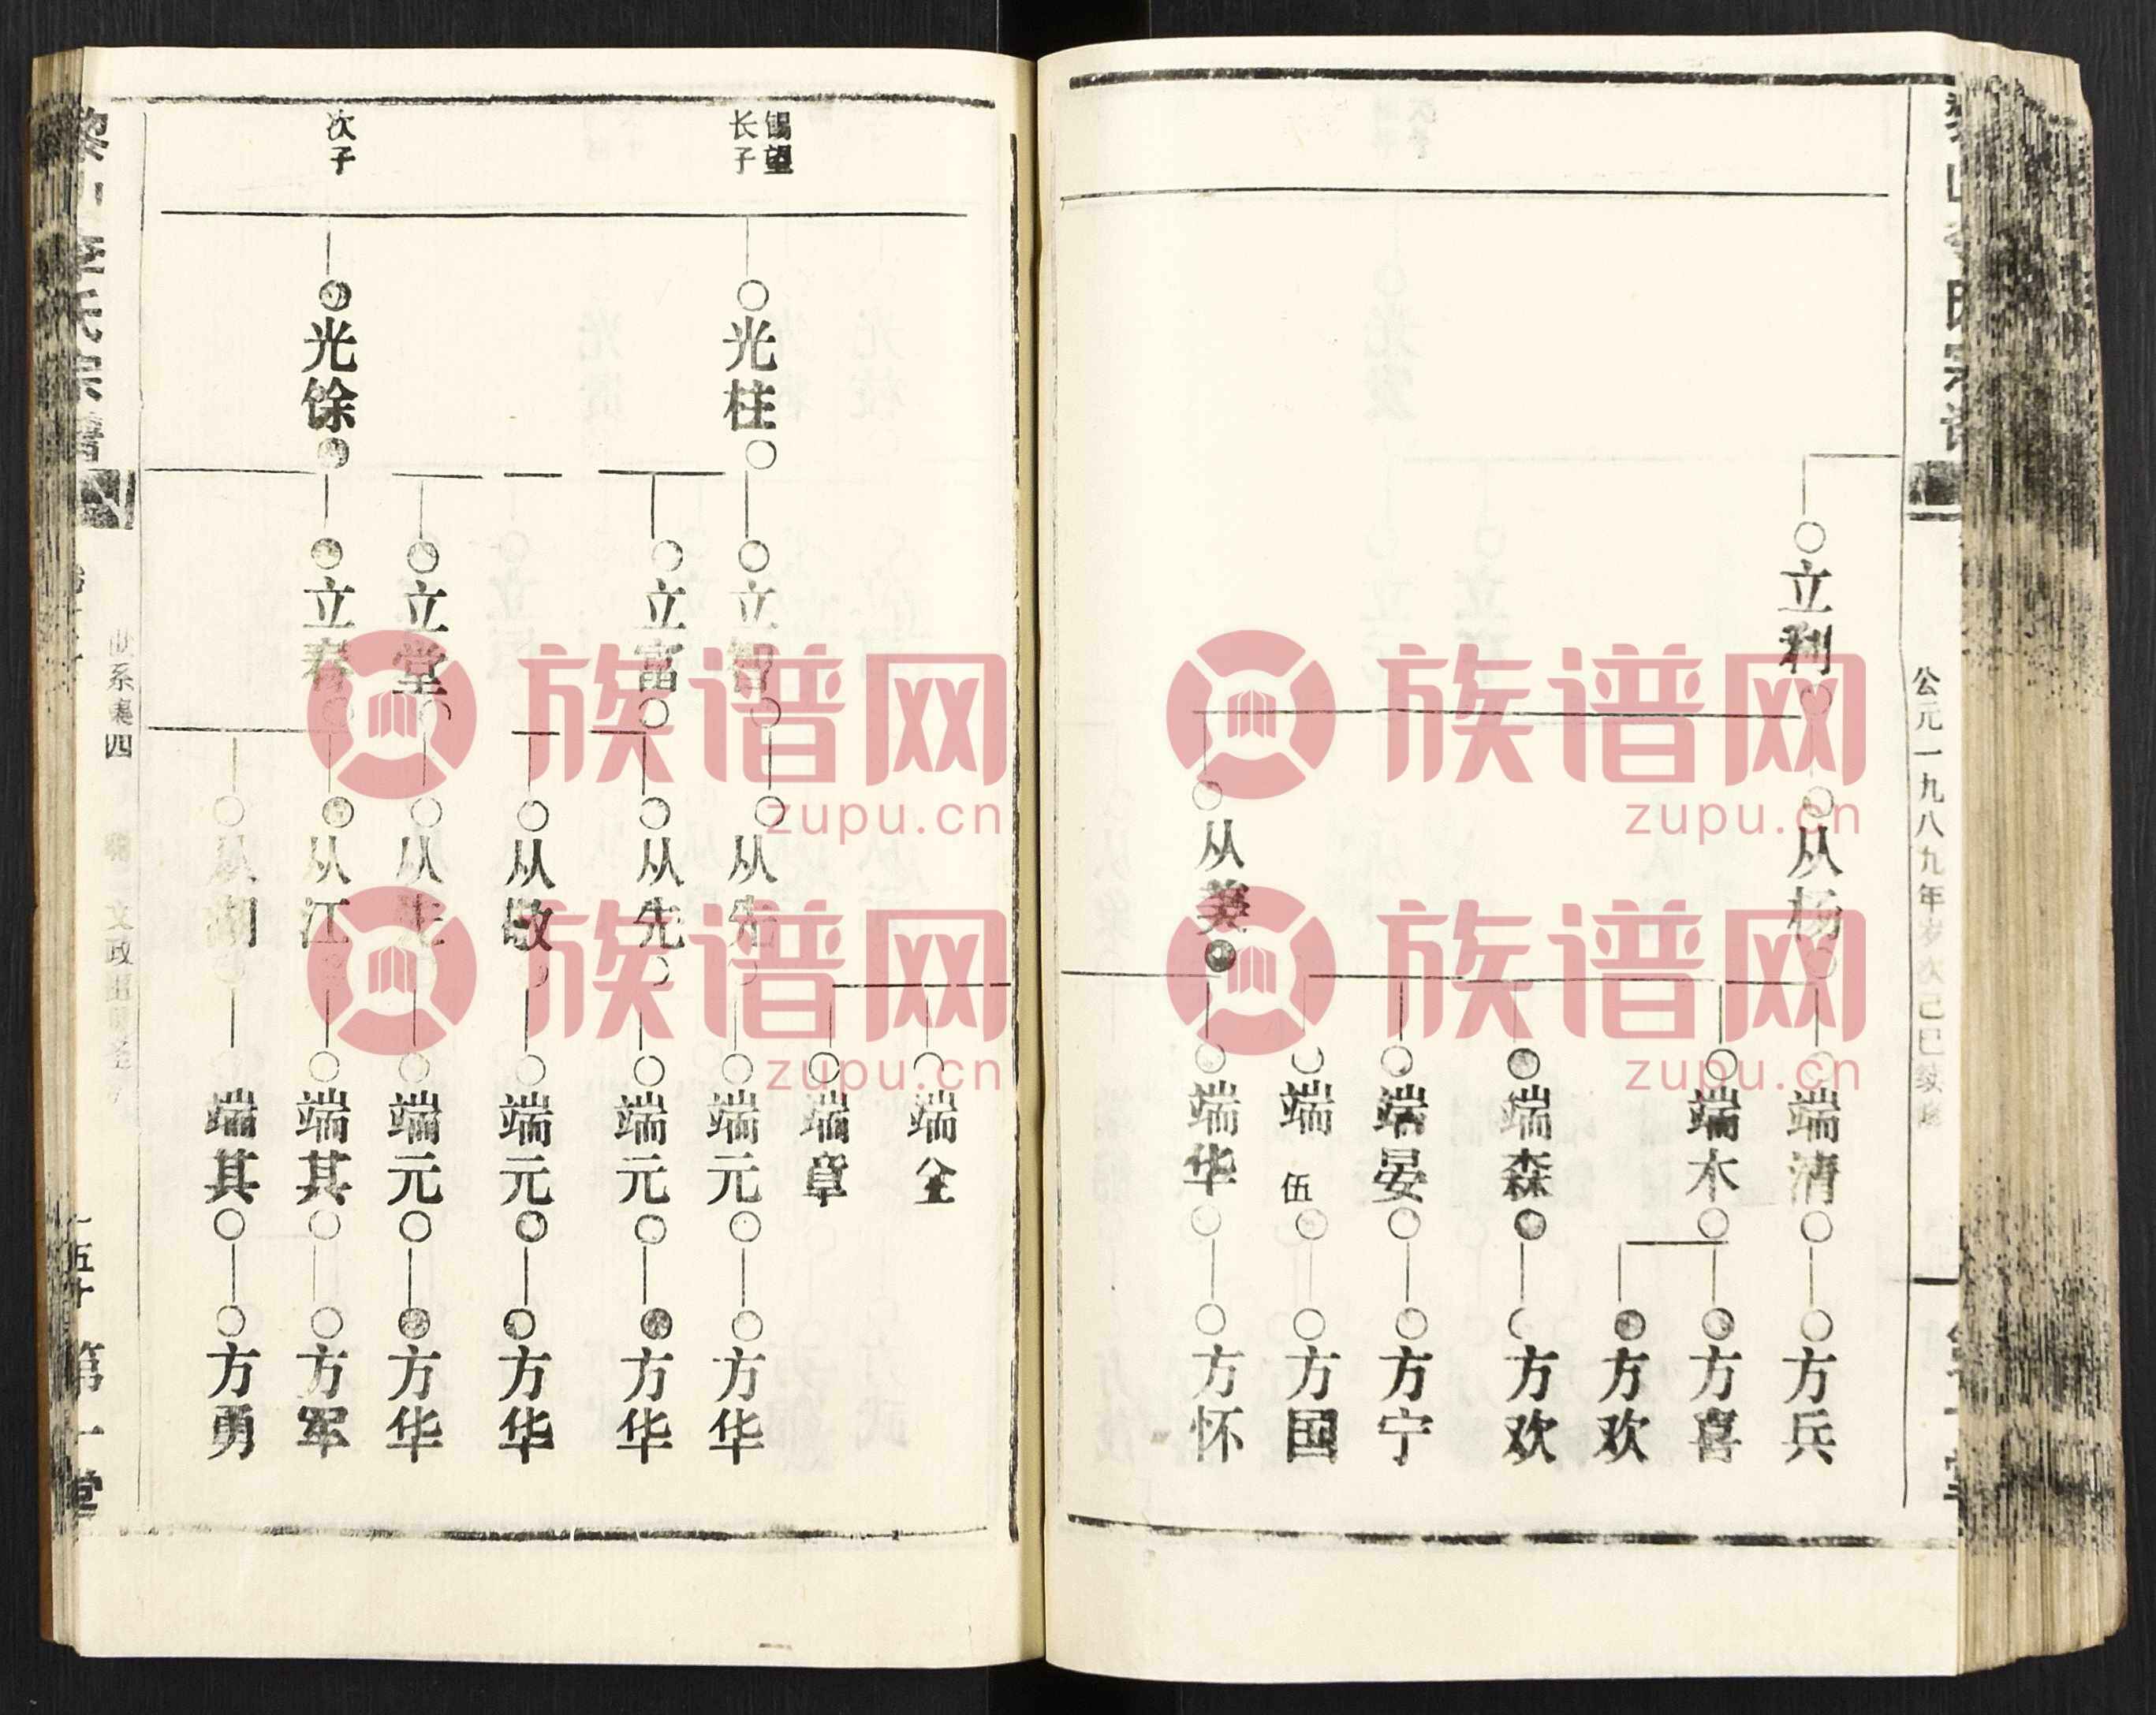 公元一九八九年岁次己巳续修
立利
从杨
从美
端清
端木
端森
端晏
端伍
端华
方兵
方喜
方欢
方欢
方宁
方国
方怀
锡望
长子
次子
光柱
光馀
立智
立富
立堂
立春
从先
从先
从敬
从江
端全
端章
端元
端元
端元
端元
端其
端其
方华
方华
方华
方华
方军
方勇
世系表四
第一堂
族谱网
zupu.cn
族谱网
zupu.cn
族谱网
zupu.cn
族谱网
zupu.cn